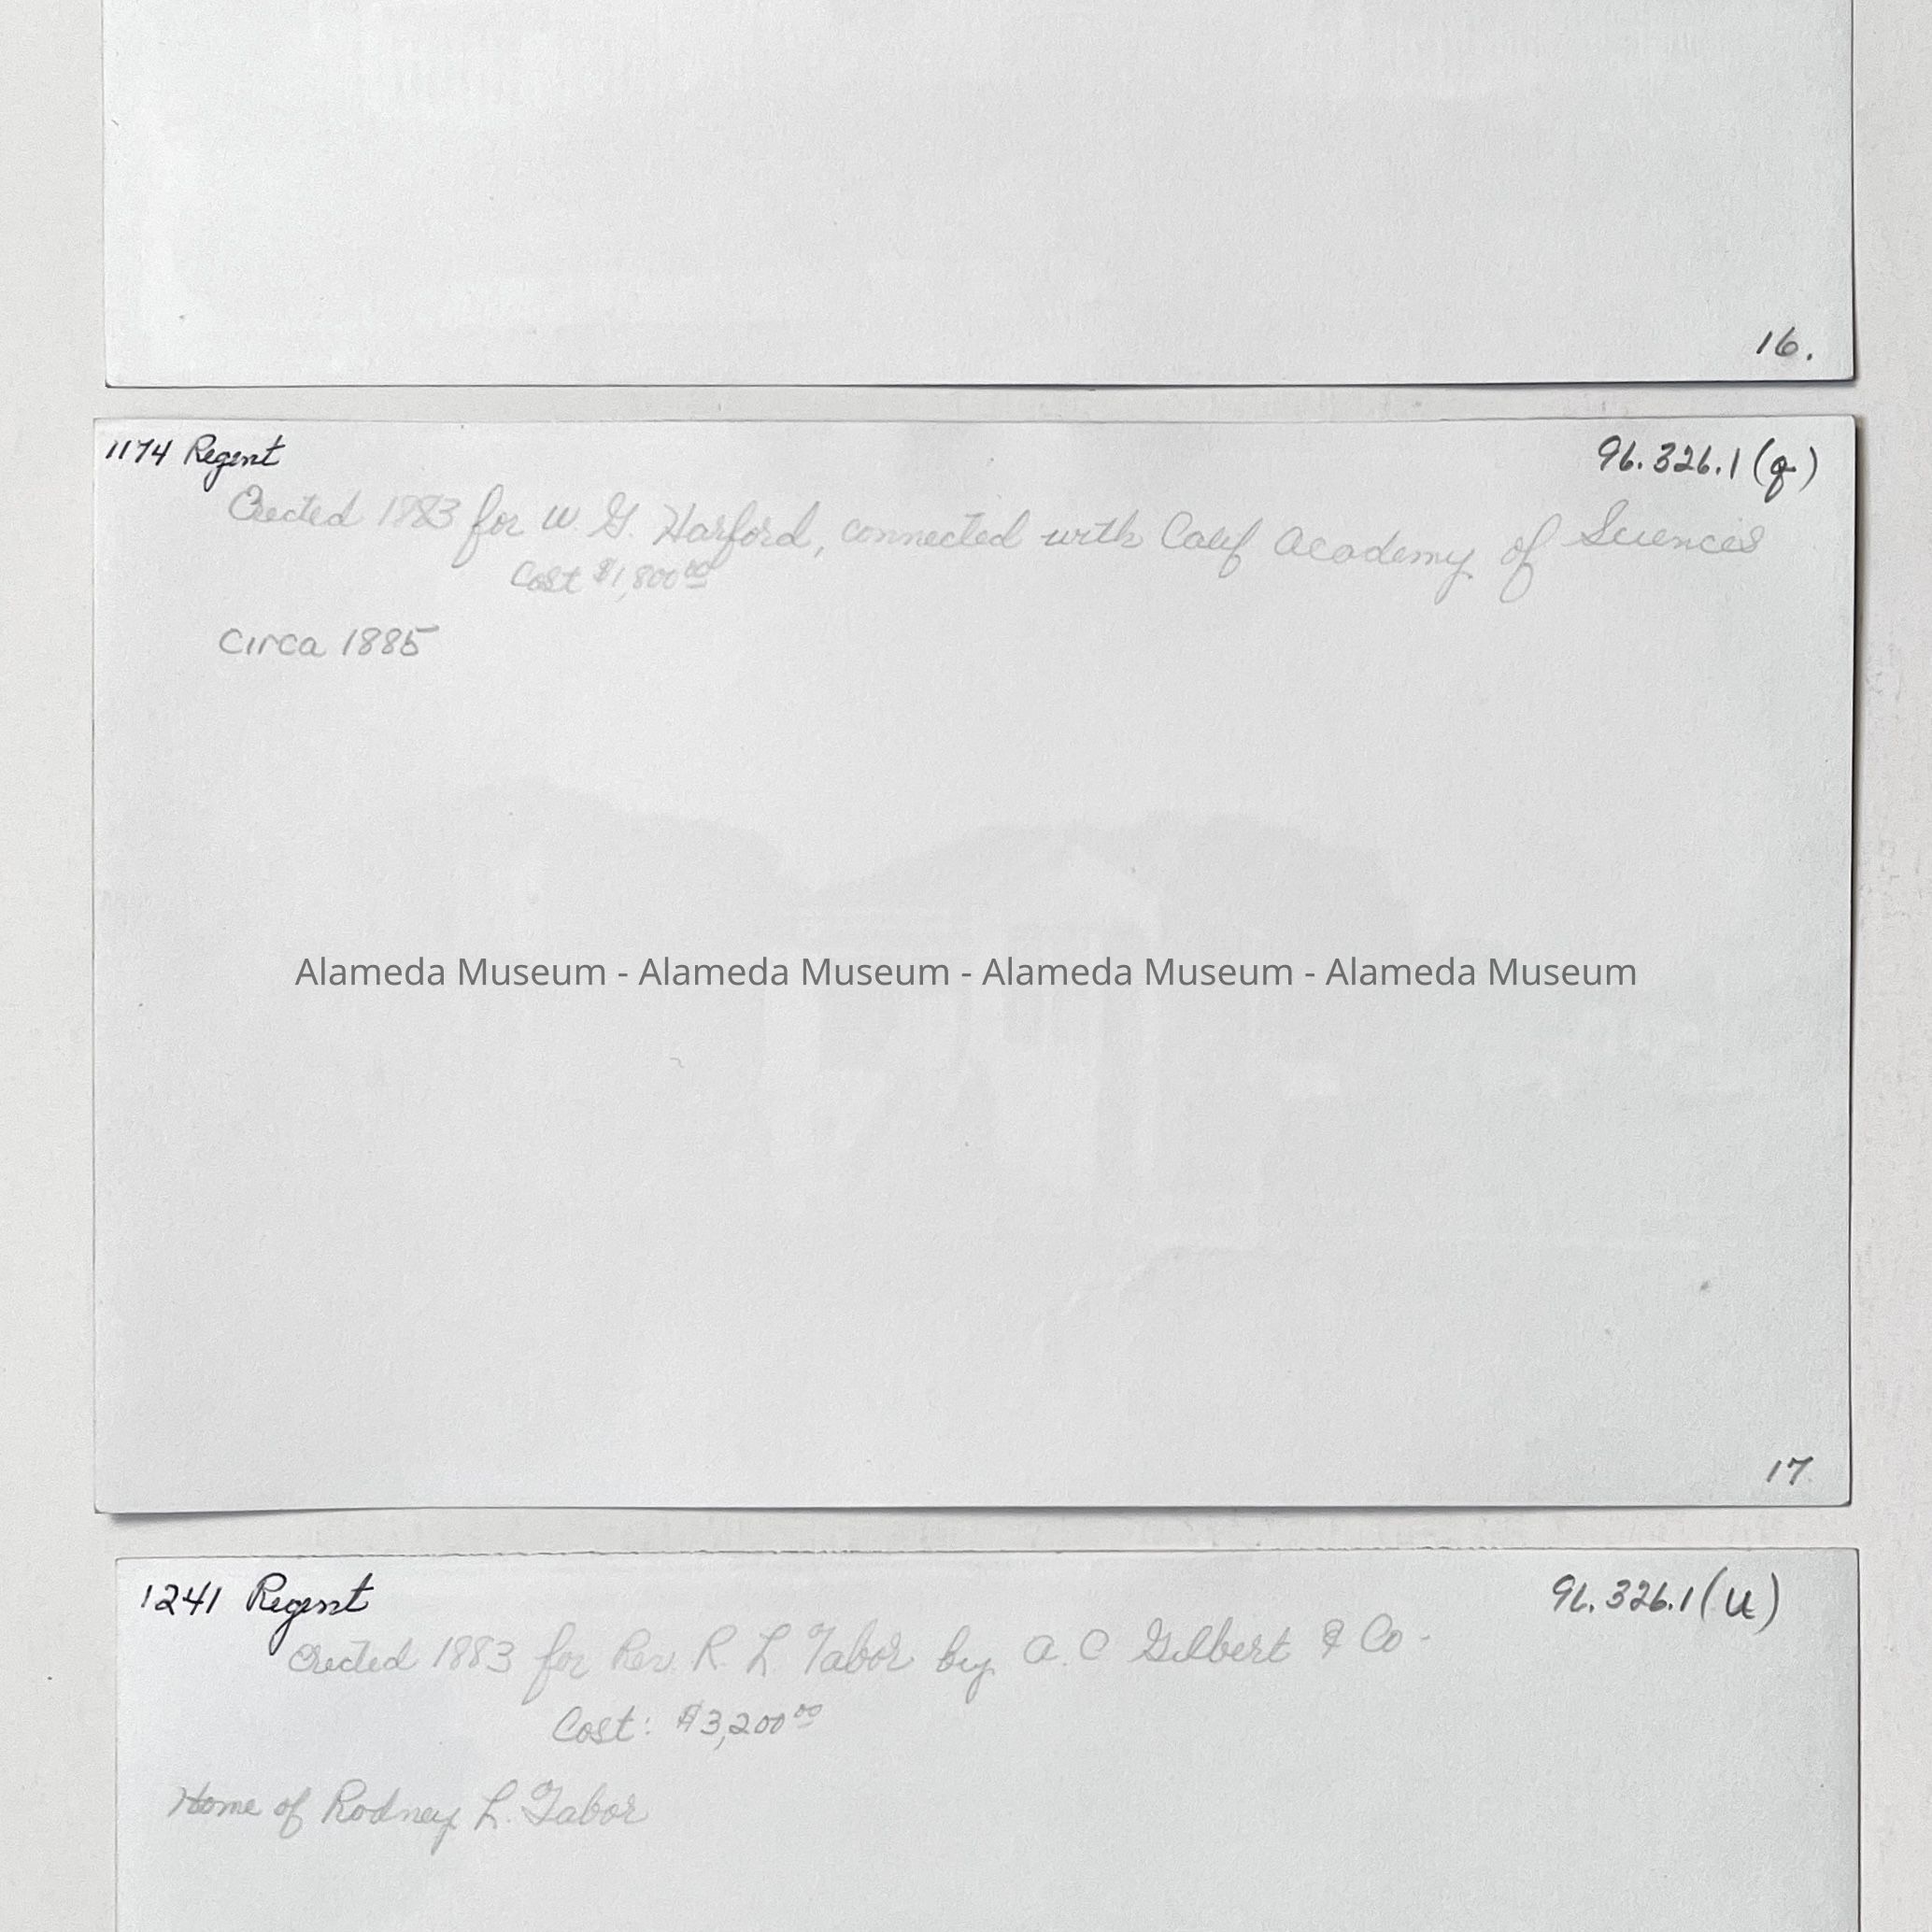 16.
1174 Regent
96.326.1 (q)
Erected 1883 for W. G. Harford, connected with Calif Academy of Sciences
Cost $1,800.00
Circa 1885
Alameda Museum - Alameda Museum - Alameda Museum - Alameda Museum
17
1241 Regent
96.326.1 (u)
Erected 1883 for Rev. R. L Tabor by A. C Gilbert & Co -
Cost: $3,200.00
Home of Rodney L. Tabor